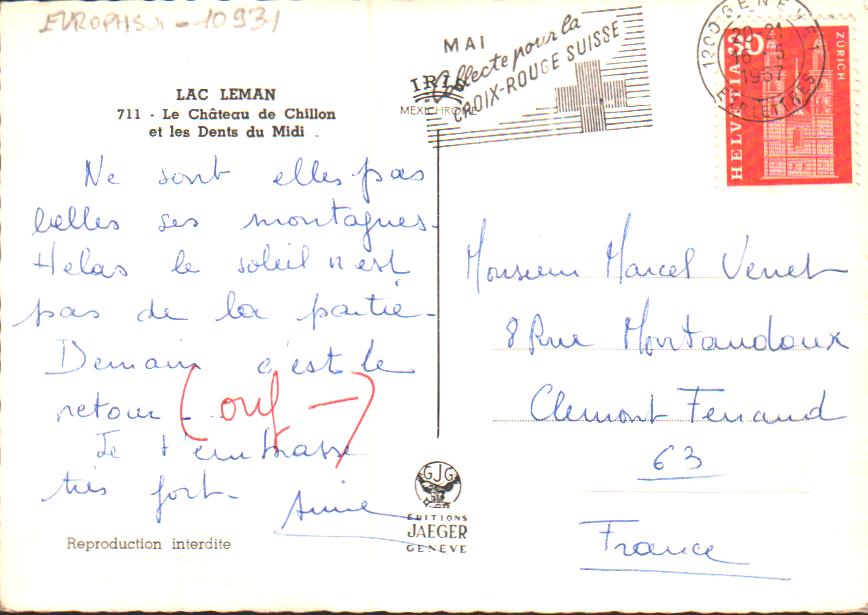 EUROPHSN - 10931
LAC LEMAN
711 - Le Château de Chillon
et les Dents du Midi
IRIS
MEXICHROME
MAI
Collecte pour la
CROIX-ROUGE SUISSE
1200 GENEVE
20-21
16-5
1967
EXP. LETTRES
30
HELVETIA
ZÜRICH
Ne sont elles pas
belles ses montagnes.
Helas le soleil n'est
pas de la partie -
Demain c'est le
retour - (ouf -)
Je t'embrasse
très fort -
Annie
Monsieur Marcel Venet
8 Rue Montaudoux
Clermont Ferrand
63
France
GJG
EDITIONS
JAEGER
GENÈVE
Reproduction interdite